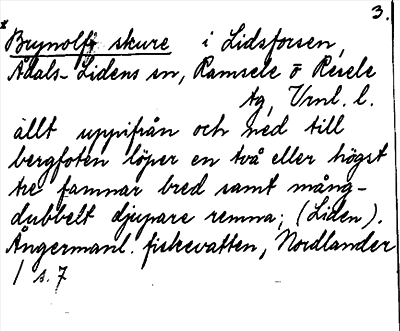 3.
Brynolfs skure i Lidsforsen,
Ådals-Lidens sn, Ramsele o Resele
tg, Vrnl. l.
ällt uppifrån och ned till
bergfoten löper en två eller högst
tre famnar bred samt mång-
dubbelt djupare remna; (Liden).
Ångermanl. fiskevatten, Nordlander
1 s. 7